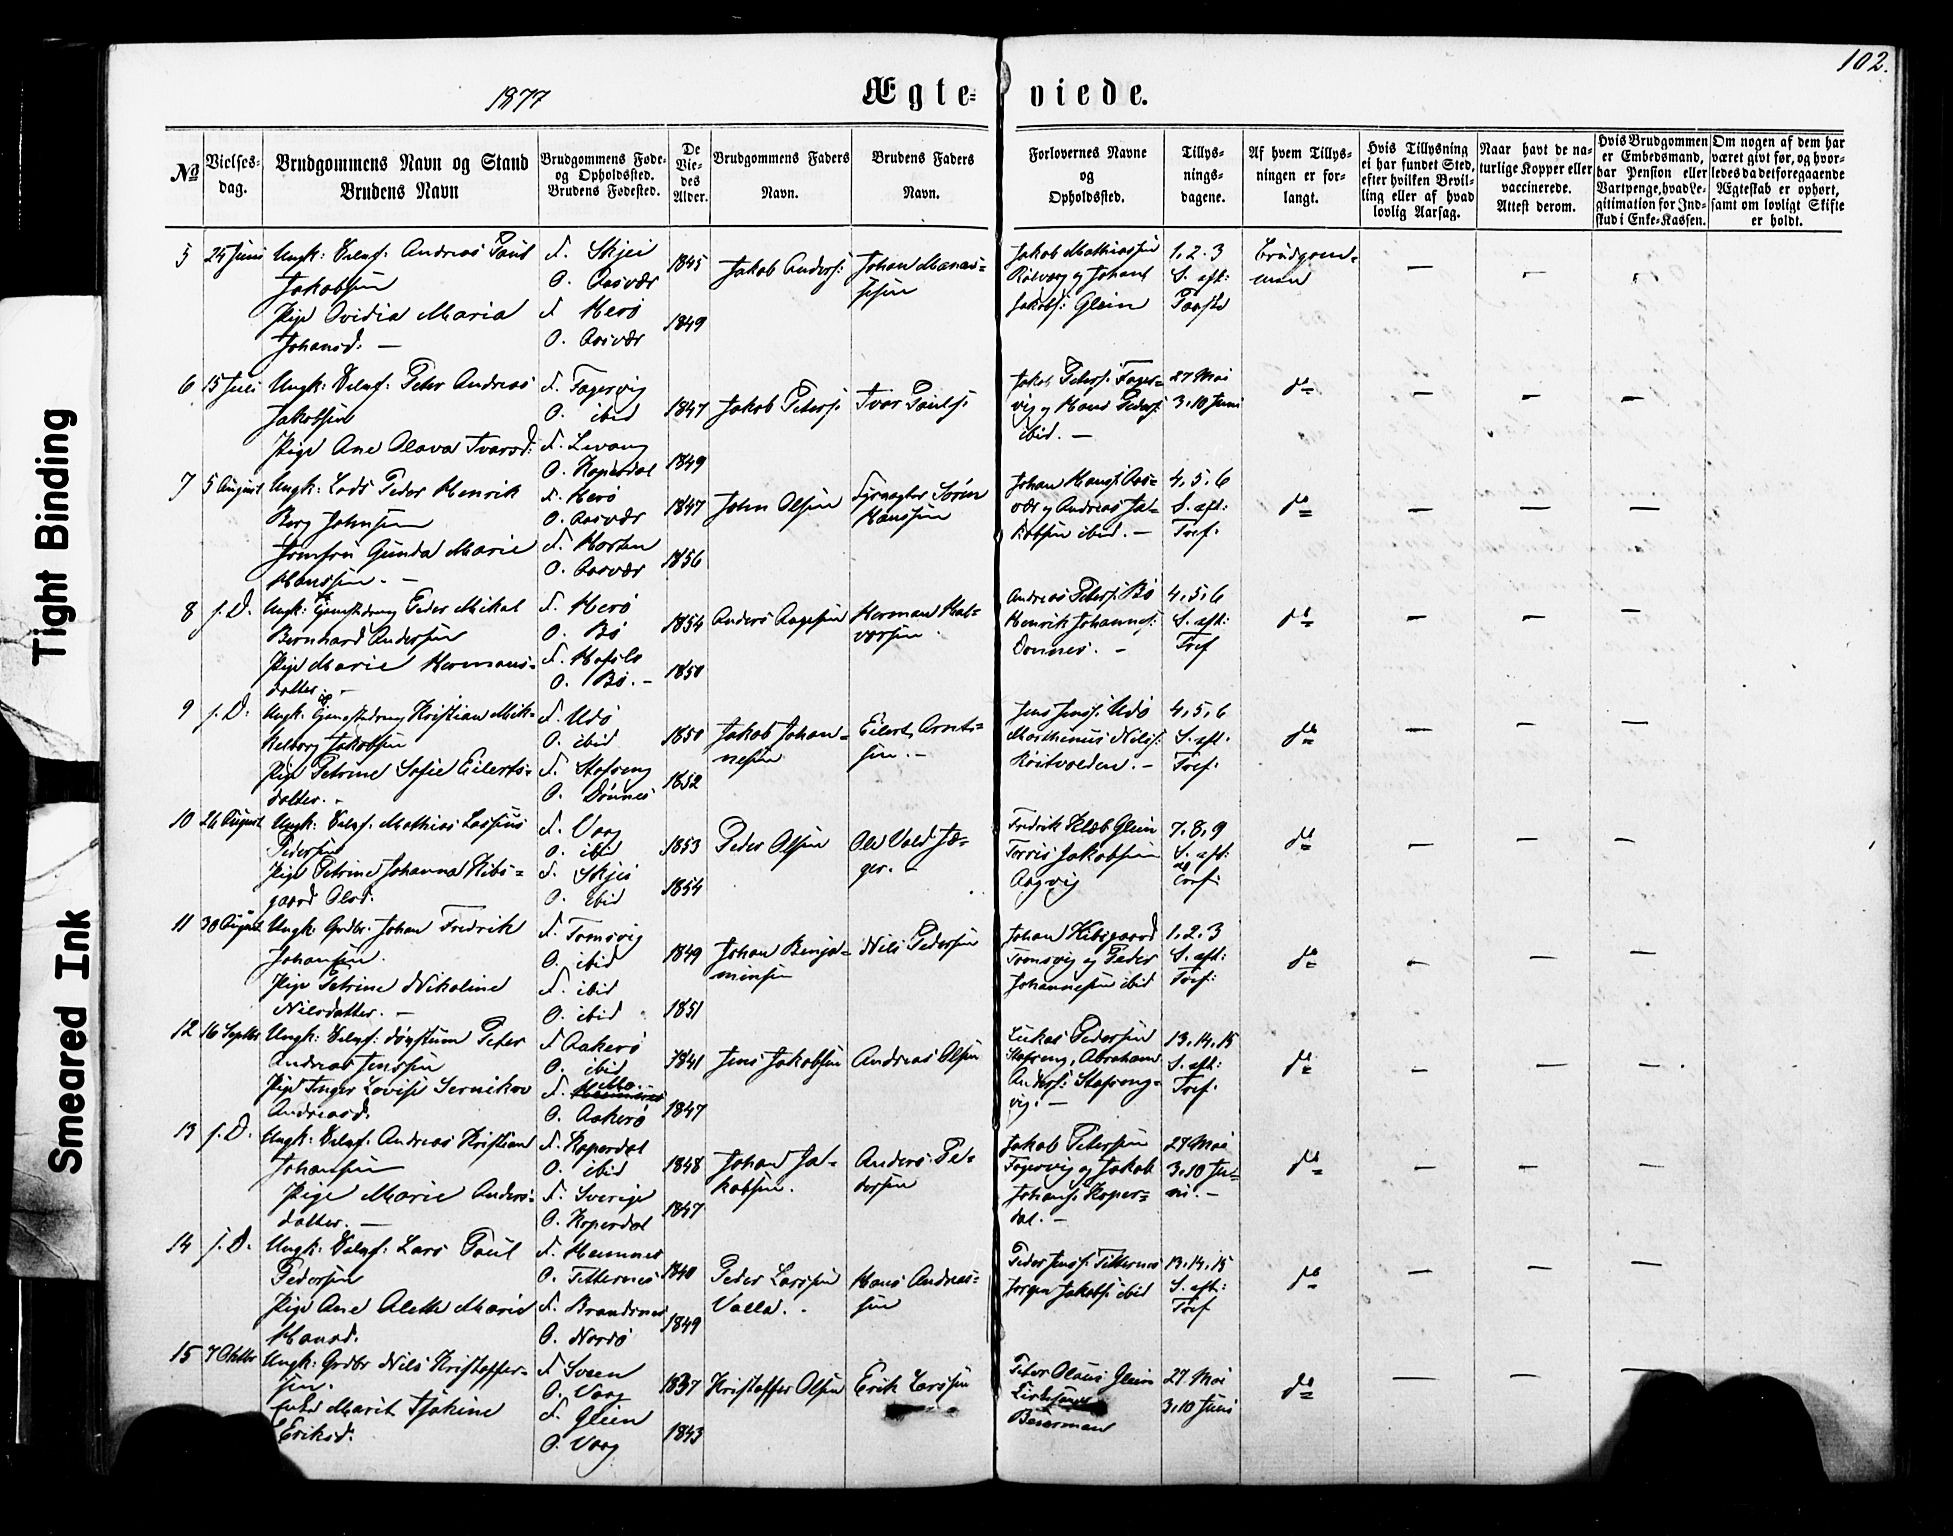 102.
1877
Ægte- viede.
Tight Binding
Smeared Ink
No
Vielses-
dag.
Brudgommens Navn og Stand
Brudens Navn
Brudgommens Føde-
og Opholdssted.
Brudens Fødested.
De
Vie-
des
Alder.
Brudgommens Faders
Navn.
Brudens Faders
Navn.
Forlovernes Navne
og
Opholdssted.
Tillys-
nings-
dagene.
Af hvem Tillys-
ningen er for-
langt.
Hvis Tillysning
ei har fundet Sted,
efter hvilken Bevil-
ling eller af hvad
lovlig Aarsag.
Naar havt de na-
turlige Kopper eller
vaccinerede.
Attest derom.
Hvis Brudgommen
er Embedsmand,
har Pension eller
Vartpenge, hvad Le-
gitimation for Ind-
skud i Enke-Kassen.
Om nogen af dem har
været givt før, og hvor-
ledes da det foregaaende
Ægteskab er ophørt,
samt om lovligt Skifte
er holdt.
5 24 Juni Ungk: Andreas Paul
Jakobsen
Pige Ovidia Maria
Johansd: —
F. Skjei
O. Aasvær
F Herø
O. Aasvær
1845
1849
Jakob Anders:
Johan Manas-
sesen
Jakob Mathiassen
Kølvarg og Johans
Jakobs: Glein
1. 2. 3
S. eft:
Paaske
Brudgom-
men
6 15 Juli Ungk: Peter Andreas
Jakobsen
Pige Ane Olava Ivarsd:
F. Fagervig
O. ibid
F. Levang
O. Koperdal
1847
1849
Jakob Peters:
Ivar Pauls:
Jakob Peters: Fager-
vig og Hans Peders:
ibid. —
27 Mai
3. 10 Juni
do
7 5 August Ungk: Lods Peder Henrik
Berg Johnsen
Jomfru Gunda Marie
Hanssen. —
F. Herø
O. Aasvær
F. Horten
O. Aasvær
1847
1856
John Olsen
Fyrvogter Sørén
Hanssen
Johan Hans: Aas-
vær og Andreas Ja-
kobsen ibid. —
4. 5. 6
S. eft:
Tref:
do
8 s. D. Ungk: Tjenestedreng Peder Mikal
Bernhard Andersen
Pige Marie Hermans-
datter. —
F. Herø
O. Bø
F. Hafsls
O. Bø. —
1854
1850
Anders Aagesen
Herman Hal-
vorsen
Andreas Peters: Bø
Henrik Johannes:
Dønnes. —
4. 5. 6
S. eft:
Tref
do
9 s. D. Ungk. Tjenestedreng Kristian Mik-
kelborg Jakobsen
Pige Petrine Sofie Eilerts-
datter. —
F. Udø
O. ibid
F. Stafseng
O. Dønnes
1850
1852
Jakob Johan-
nesen
Eilert Arnts-
sen. —
Jens Jens: Udø
Marthinus Nils:
4. 5. 6
S. eft.
Tref:
do
10 26 August Ungk: Mathias Lassius
Pedersen
Pige Petrine Johanna Hibs-
gaard Olsd.
F. Vaag
O. ibid
F. Skjei
O. ibid
1853
1854
Peder Olsen
Ole Vold Jæ-
ger. —
Fredrik Klæb: Glein
Torris Jakobsen
Aagvig
7. 8. 9
S. eft:
Tref:
do
11 30 August Ungk. Grdbr. Johan Fredrik
Johansen.
Pige Petrine Nikoline
Nilsdatter. —
F. Tomsvig
O. ibid
F. ibid
O. ibid
1849
1851
Johan Benja-
minsen
Nils Pedersen
Johan Hibsgaard
Tomsvig og Peder
Johannesen ibid
1. 2. 3
S. eft:
Tref:
do
12 16 Septbr Ungk: Døvstum Peter
Andreas Jenssen
Pige Inger Lovise Sernikov
Andreasd.
F Aakerø
O. ibid
F.
O. Aakerø
1841
1847
Jens Jakobsen
Andreas Olsen
Lukas Pedersen
Stafseng, Abraham
Anders: Stafseng-
vig. —
13. 14. 15
S. eft:
Tref.
do
13 s. D. Ungk: Andreas Kristian
Johansen
Pige Marie Anders-
datter. —
F. Koperdal
O. ibid
F. Sverige
O. Koperdal
1848
1847
Johan Ja-
kobsen.
Anders Pe-
dersen
Jakob Petersen
Fagervig og Jakob
Johans: Koper-
dal. —
27 Mai
3. 10 Ju-
ni. —
do
14 s. D. Ungk: Lars Paul
Pedersen
Pige Ane Aleth Marie
Hansd.
F. Hemnes
O. Titternes
F. Brandsnes
O. Nordø
1840
1849
Peder Larssen
Valla. —
Hans Andreas-
sen
Peder Jens: Titternes
Jørgen Jakobs: ibid
13. 14. 15
S. eft:
Tref
do
15 7 Oktbr Ungk: Grdbr Nils Kristoffer-
sen.
Enke Marit Tjokine
Eriksd.
F. Sveen
O. Vaag
F. Glein
O. Vaag
1837
1843
Kristoffer Olsen
Erik Larssen
Peter Olaus Glein
Beiermand
27 Mai
3. 10 Juni
do